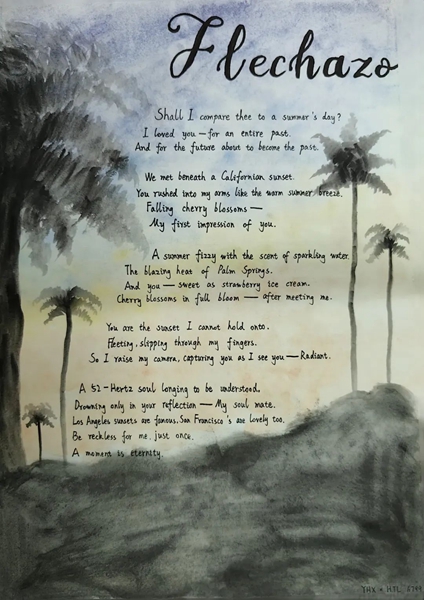 Flechazo
Shall I compare thee to a summer's day?
I loved you — for an entire past.
And for the future about to become the past.
We met beneath a Californian sunset.
You rushed into my arms like the warm summer breeze.
Falling cherry blossoms —
My first impression of you.
A summer fizzy with the scent of sparkling water.
The blazing heat of Palm Springs.
And you — sweet as strawberry ice cream.
Cherry blossoms in full bloom — after meeting me.
You are the sunset I cannot hold onto.
Fleeting, slipping through my fingers.
So I raise my camera, capturing you as I see you — Radiant.
A 52-Hertz soul longing to be understood.
Drowning only in your reflection — My soul mate.
Los Angeles sunsets are famous, San Francisco's are lovely too.
Be reckless for me, just once.
A moment is eternity.